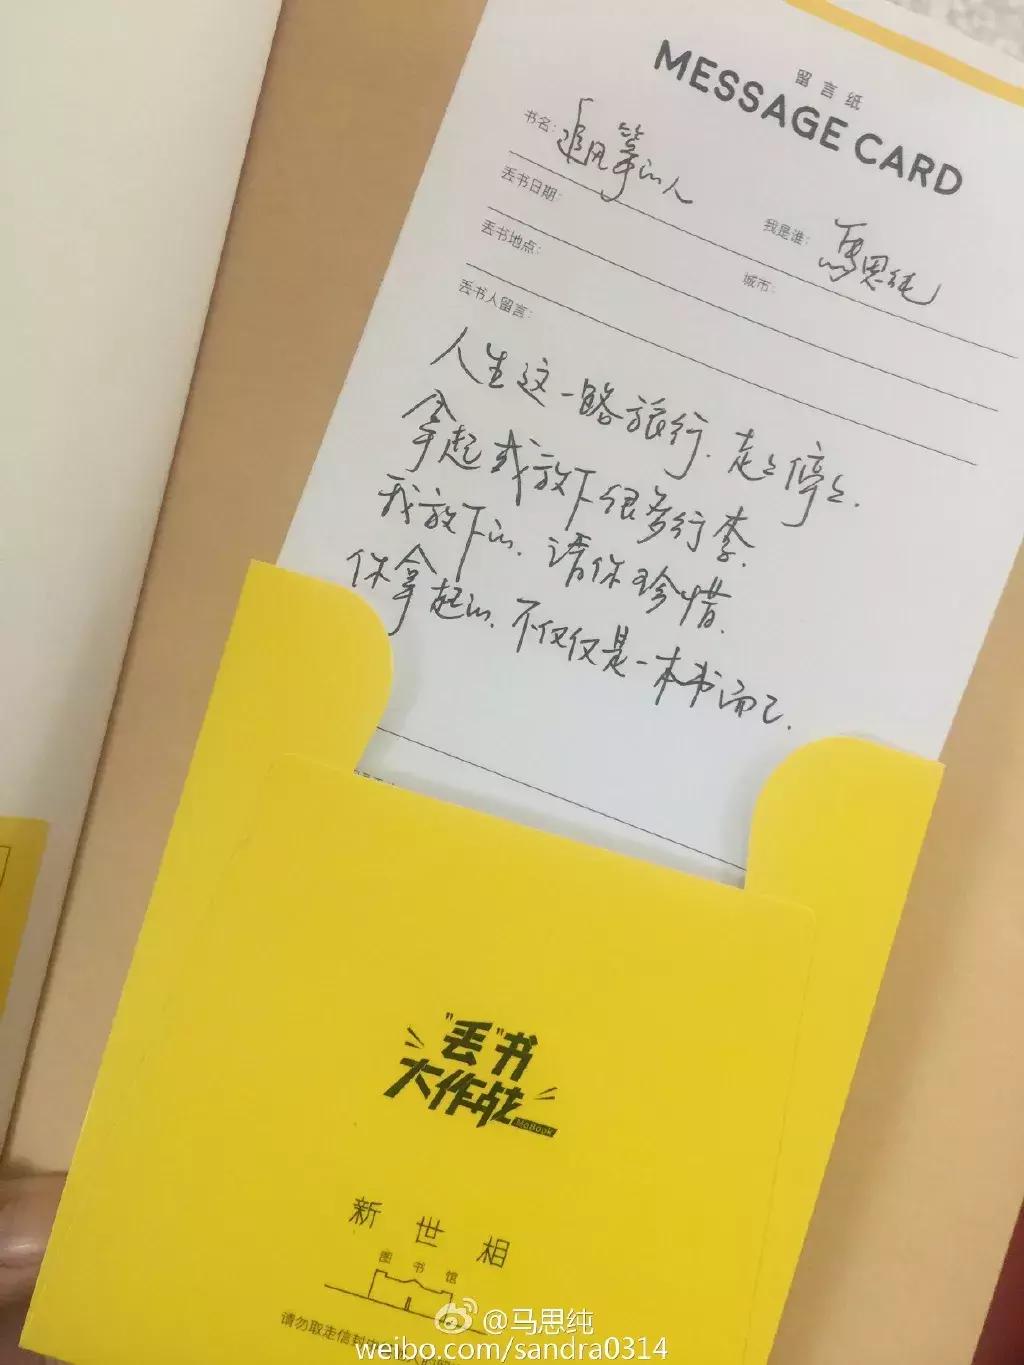 留言纸
MESSAGE CARD
书名: 追风筝的人
丢书日期:
我是谁: 馬思纯
丢书地点:
城市:
丢书人留言:
人生这一路旅行.走走停停.
拿起或放下很多行李.
我放下的.请你珍惜.
你拿起的.不仅仅是一本书而已.
"丢"书
大作战
MoBook
新世相
图书馆
请勿取走信封中
@马思纯
weibo.com/sandra0314